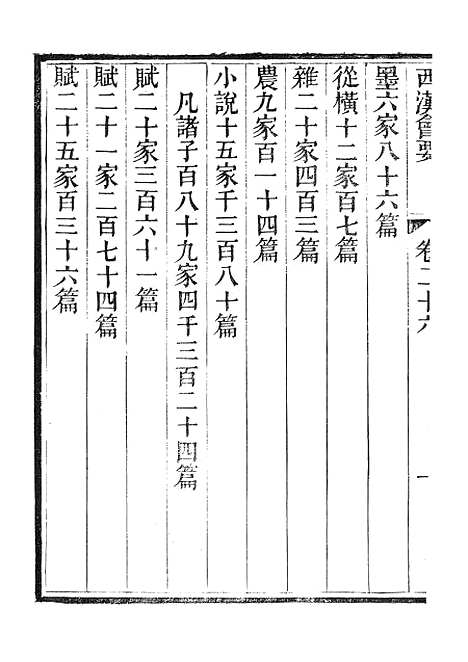 西漢會要 卷二十六 一
墨六家八十六篇
從橫十二家百七篇
雜二十家四百三篇
農九家百一十四篇
小說十五家千三百八十篇
凡諸子百八十九家四千三百二十四篇
賦二十家三百六十一篇
賦二十一家二百七十四篇
賦二十五家百三十六篇